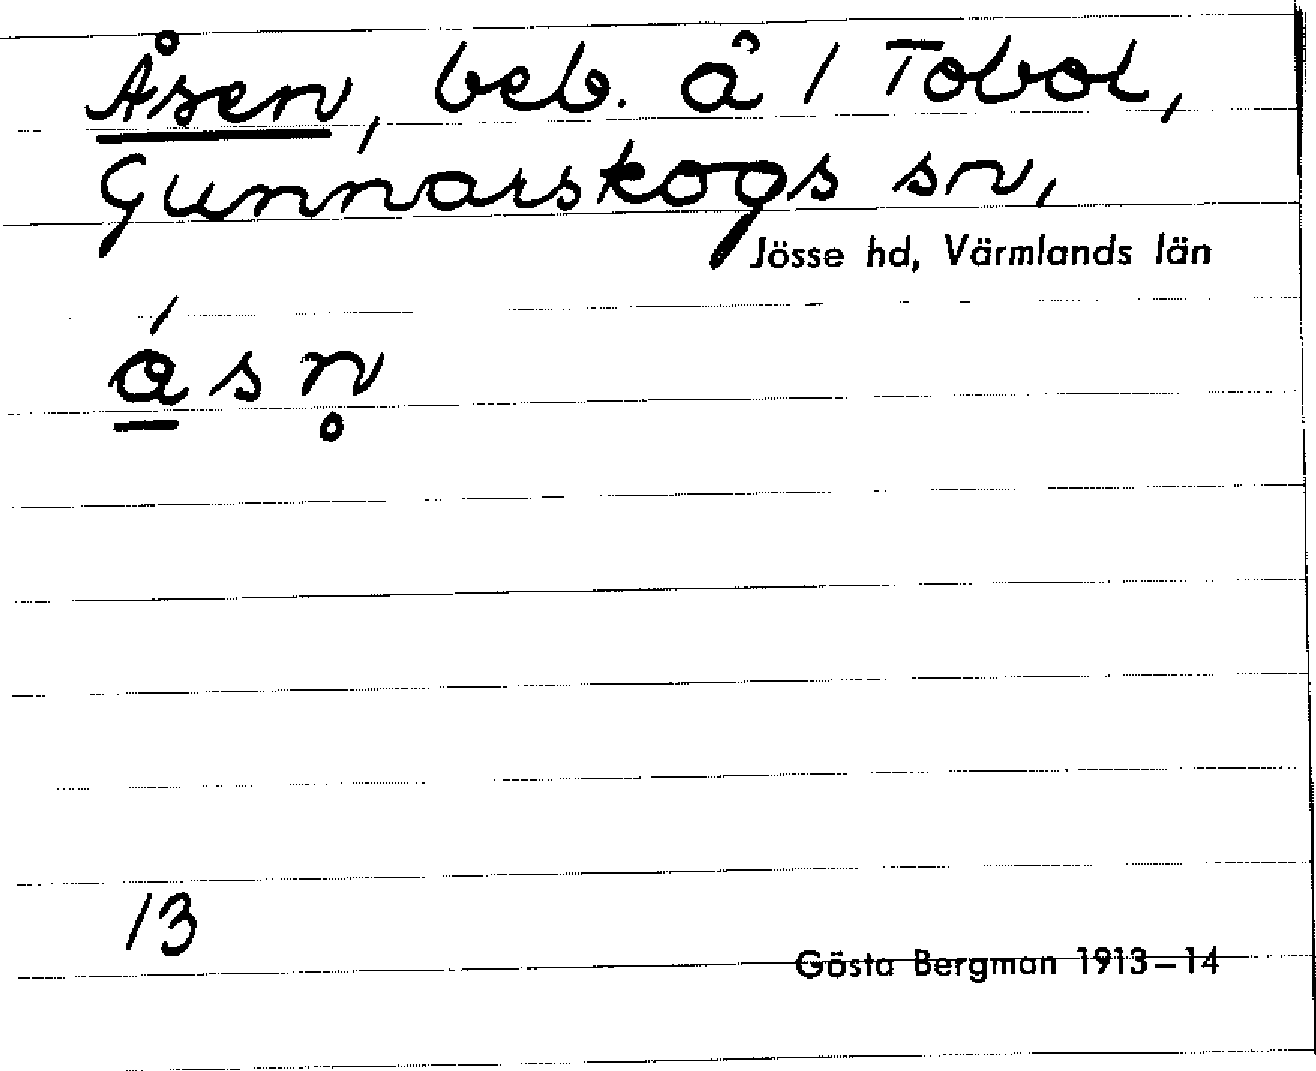 Åsen, beb. å 1 Tobol,
Gunnarskogs sn,
Jösse hd, Värmlands län
ǻsn̥
13
Gösta Bergman 1913–14